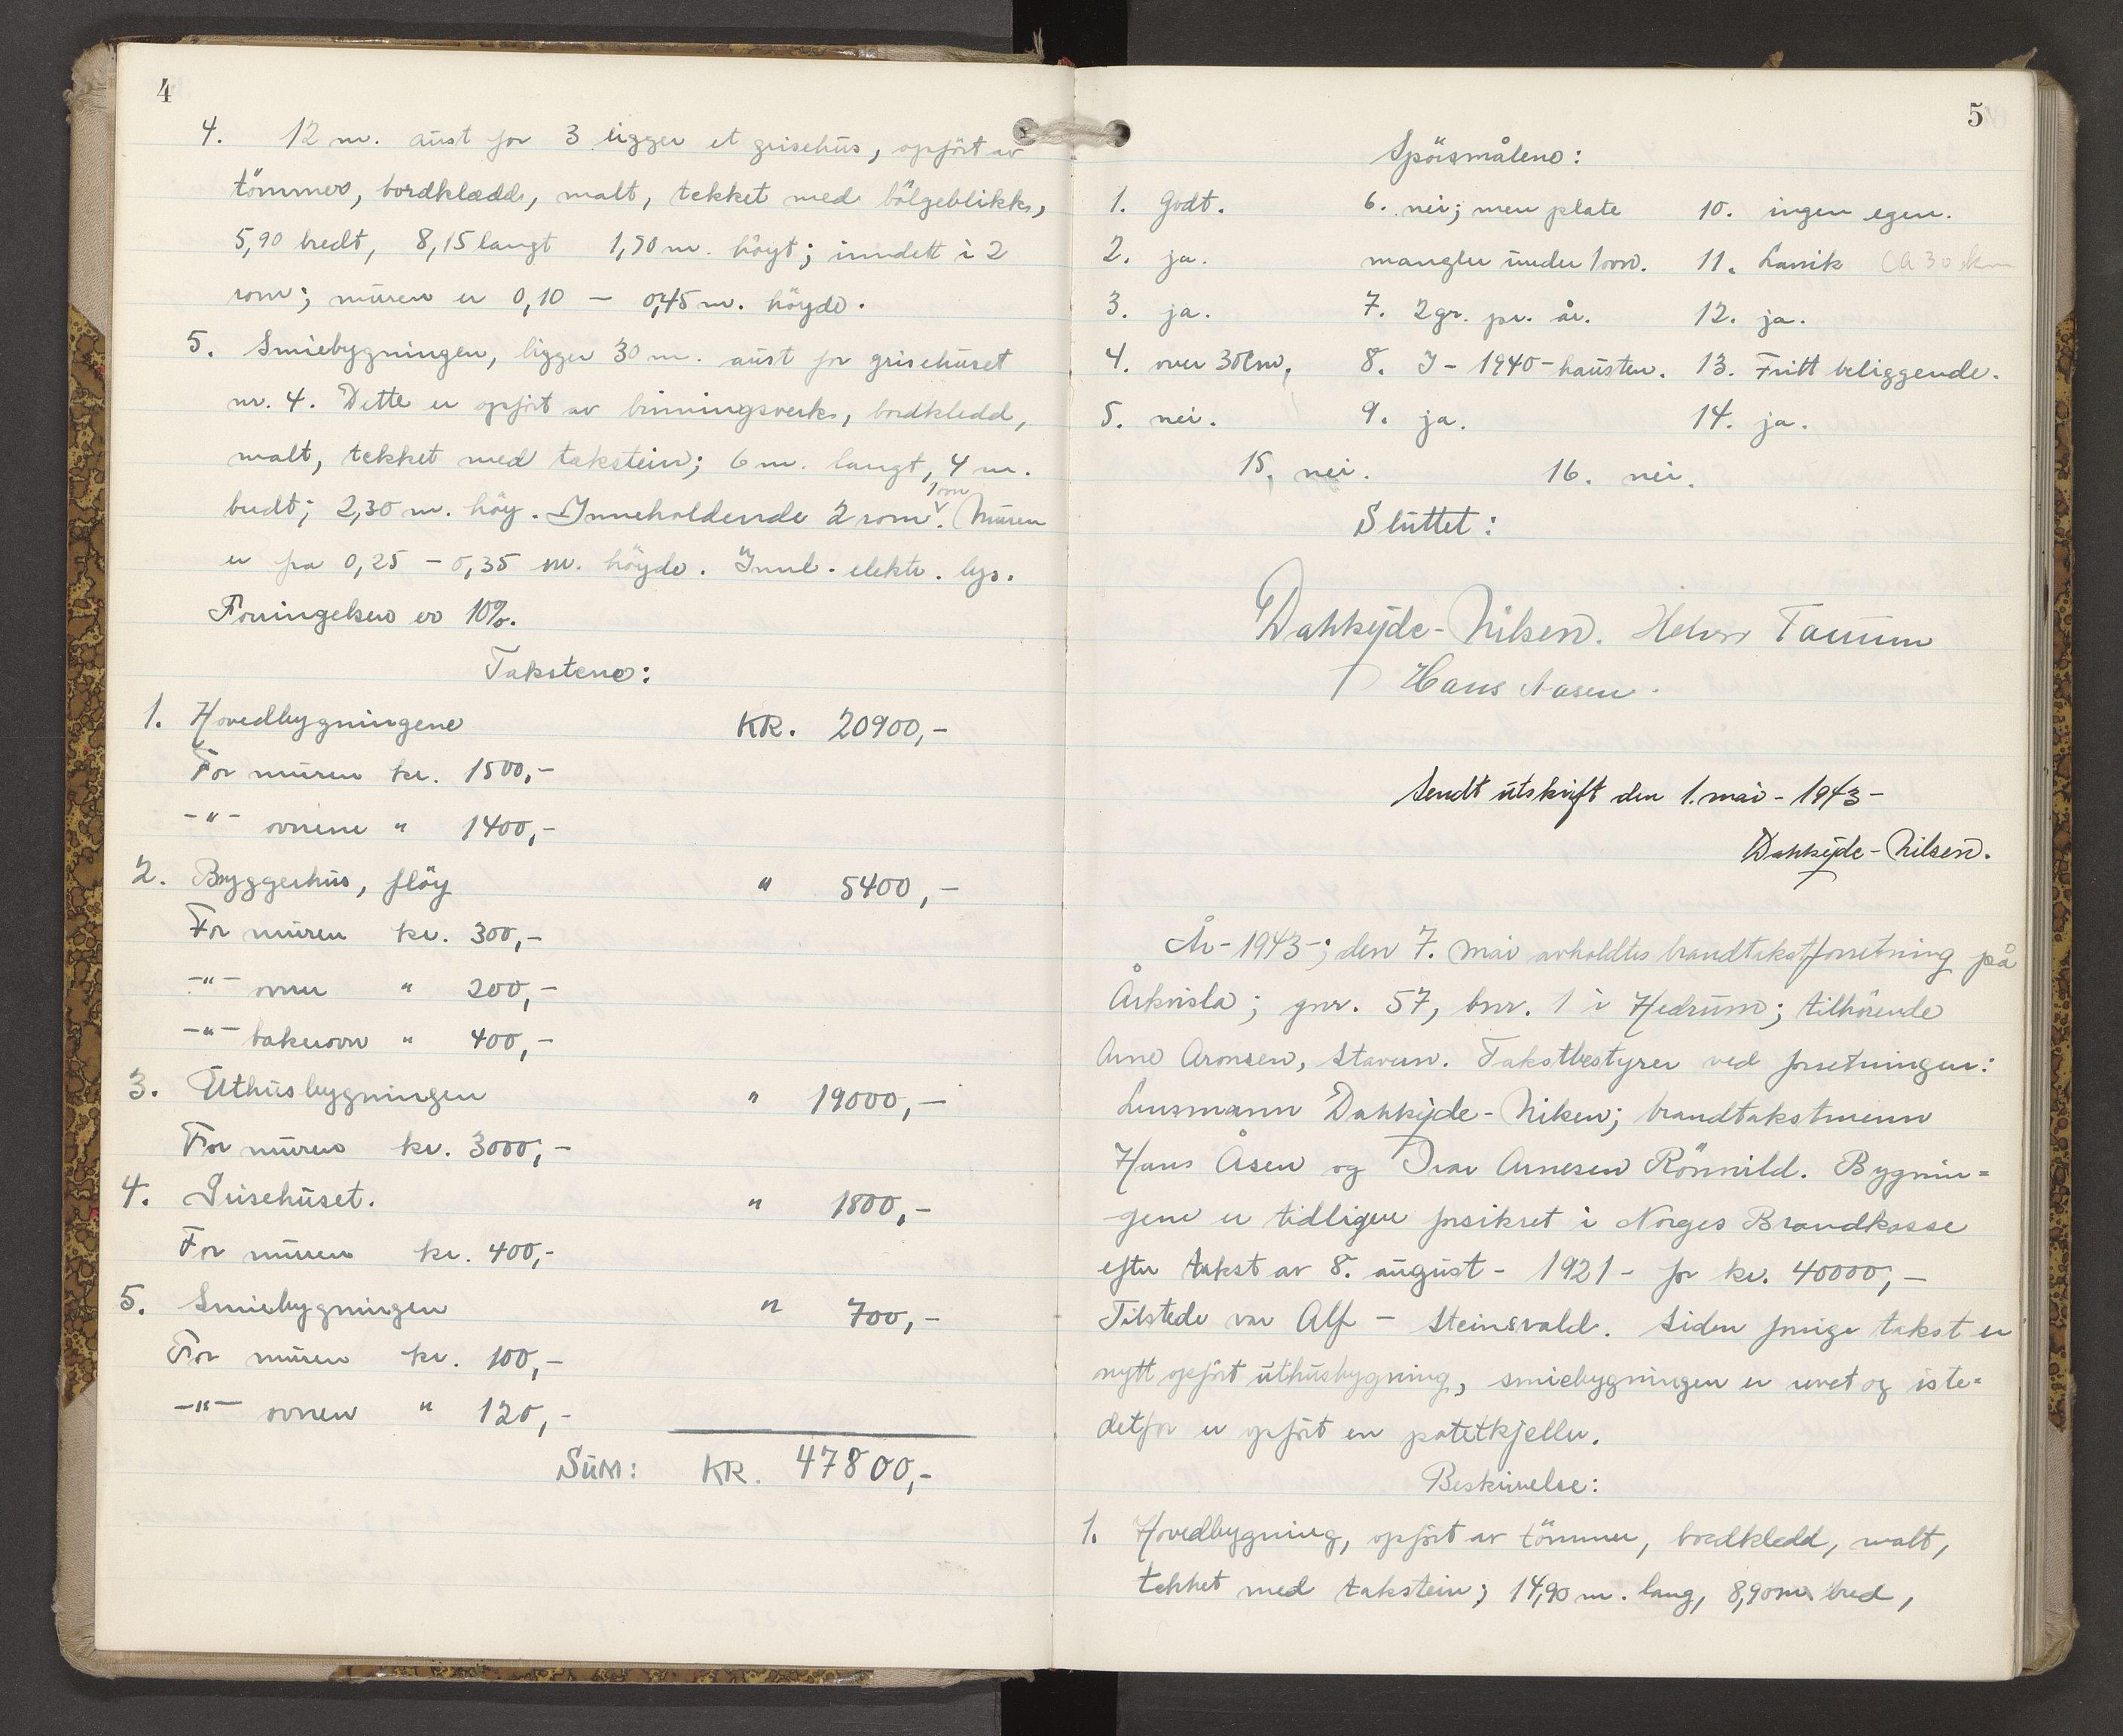 4
4. 12 m. aust for 3 ligger et grisehus, opført av
tömmer, bordkledd, malt, tekket med bölgeblikk,
5,90 bredt, 8,15 langt 1,90 m. höyt; inndelt i 2
rom; muren er 0,10 - 0,45 m. höyde.
5. Smiebygningen, ligger 30 m. aust for grisehuset
nr. 4. Dette er opfört av binningsverk, bordkledd,
malt, tekket med takstein; 6 m. langt, 4 m.
bredt; 2,30 m. höy. Inneholdende 2 rom. Muren
1 ovn
er fra 0,25 - 0,35 m. höyde. Innl. elektr. lys.
Forringelsen er 10%.
Takstene:
1. Hovedbygningene KR. 20900,-
For muren kr. 1500,-
-"- ovnene " 1400,-
2. Bryggerhus, flöy " 5400,-
For muren kr. 300,-
-"- ovnen " 200,-
-"- bakerovn " 400,-
3. Uthusbygningen " 19000,-
For muren kr. 3000,-
4. Grisehuset. " 1800,-
For muren kr. 400,-
5. Smiebygningen " 700,-
For muren kr. 100,-
-"- ovnen " 120,-
SUM: KR. 47800,-
5
Spörsmålene:
1. Godt. 6. nei; men plate 10. ingen egen.
2. ja. mangler under 1 ovn. 11. Larvik ca 30 km
3. ja. 7. 2 gr. pr. år. 12. ja.
4. over 30 cm. 8. I - 1940 - hausten. 13. Fritt beliggende.
5. nei. 9. ja. 14. ja.
15. nei. 16. nei.
Sluttet:
Dahkyde-Nilsen. Tanum
Hans Aasen.
Sendt utskrift den 1. mai - 1943 -
Dahkyde-Nilsen.
År - 1943 -; den 7. mai avholdtes brandtakstforretning på
Åskvisla; gnr. 57, bnr. 1 i Hedrum; tilhörende
Arne Aronsen, Stavern. Takstbestyrer ved forretningen:
Lensmann Dahkyde-Nilsen; brandtakstmenn
Hans Åsen og Ivar Arnesen Rönnild. Bygnin=
gene er tidligere forsikret i Norges Brandkasse
efter takst av 8. august - 1921 - for kr. 40000,-
Tilstede var Alf - Steinsvald. Siden forrige takst er
nytt opfört uthusbygning, smiebygningen er revet og iste=
detfor er opfört en potetkjeller.
Beskrivelse:
1. Hovedbygning, opfört av tömmer, bordkledd, malt,
tekket med takstein; 14,90 m. lang, 8,90 m. bred,